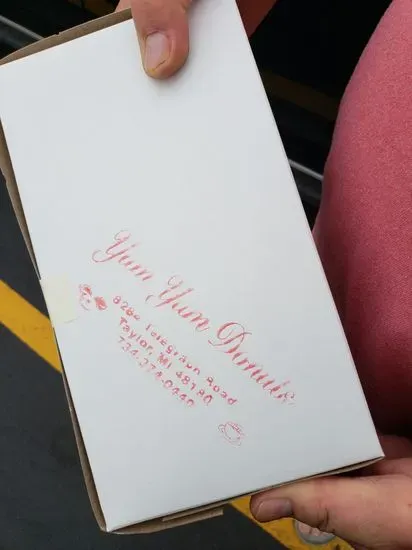 Yum Yum Donuts
8284 Telegraph Road
Taylor, MI 48180
734-374-0440